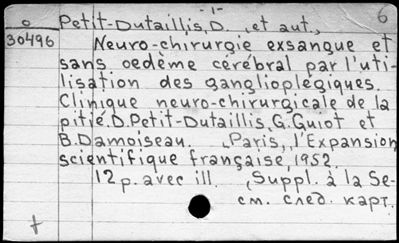 -1-
6
Petit-Dutaillis, D., et aut.,
30496
Neuro-chirurgie exsangue et
sans oedème cérébral par l'uti-
lisation des ganglioplégiques.
Clinique neuro-chirurgicale de la
pitié. D. Petit-Dutaillis, G. Guiot et
B. Damoiseau. Paris, l'Expansion
scientifique française, 1952.
12 p. avec ill. (Suppl. à la Se-
см. след. карт.